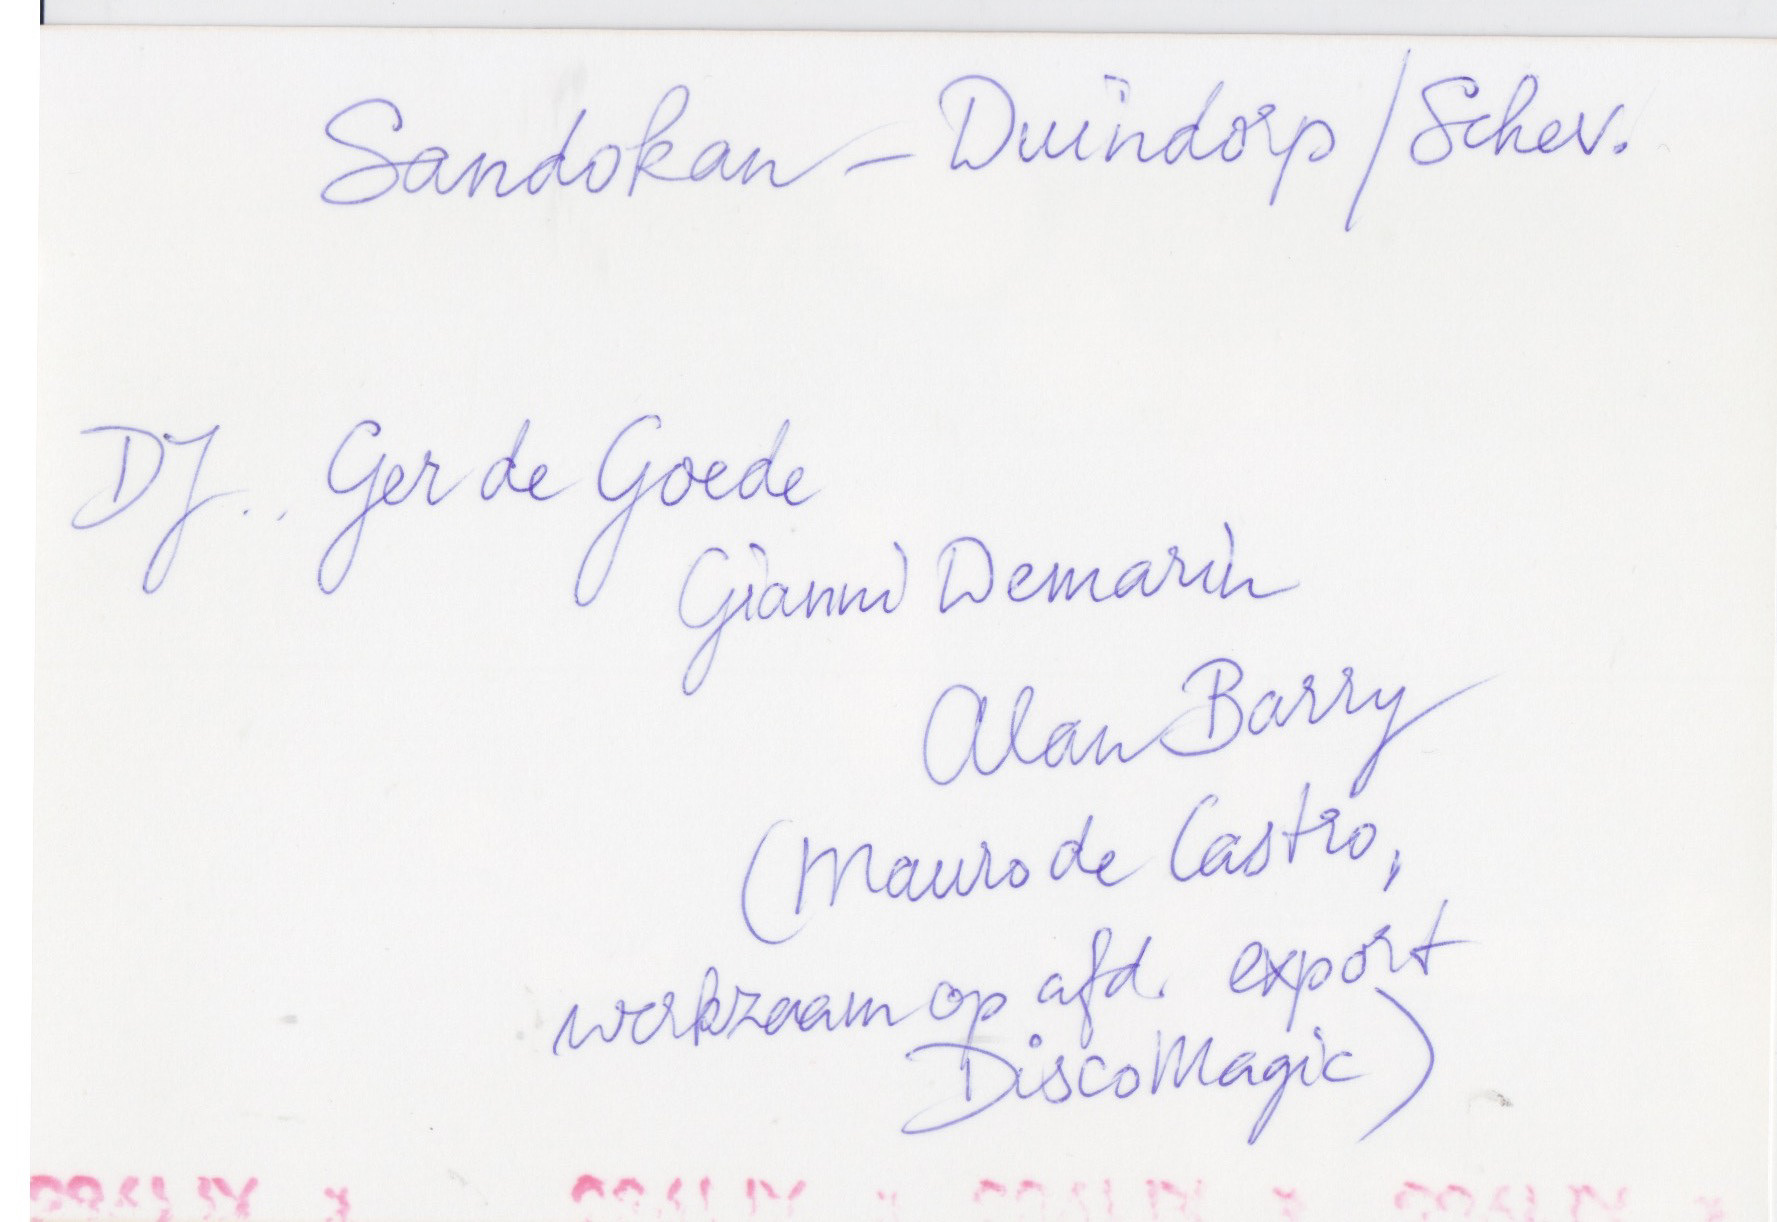 Sandokan – Duindorp / Schev.
DJ.. Ger de Goede
Gianni Demarin
Alan Barry
(Mauro de Castro,
werkzaam op afd. export
DiscoMagic)